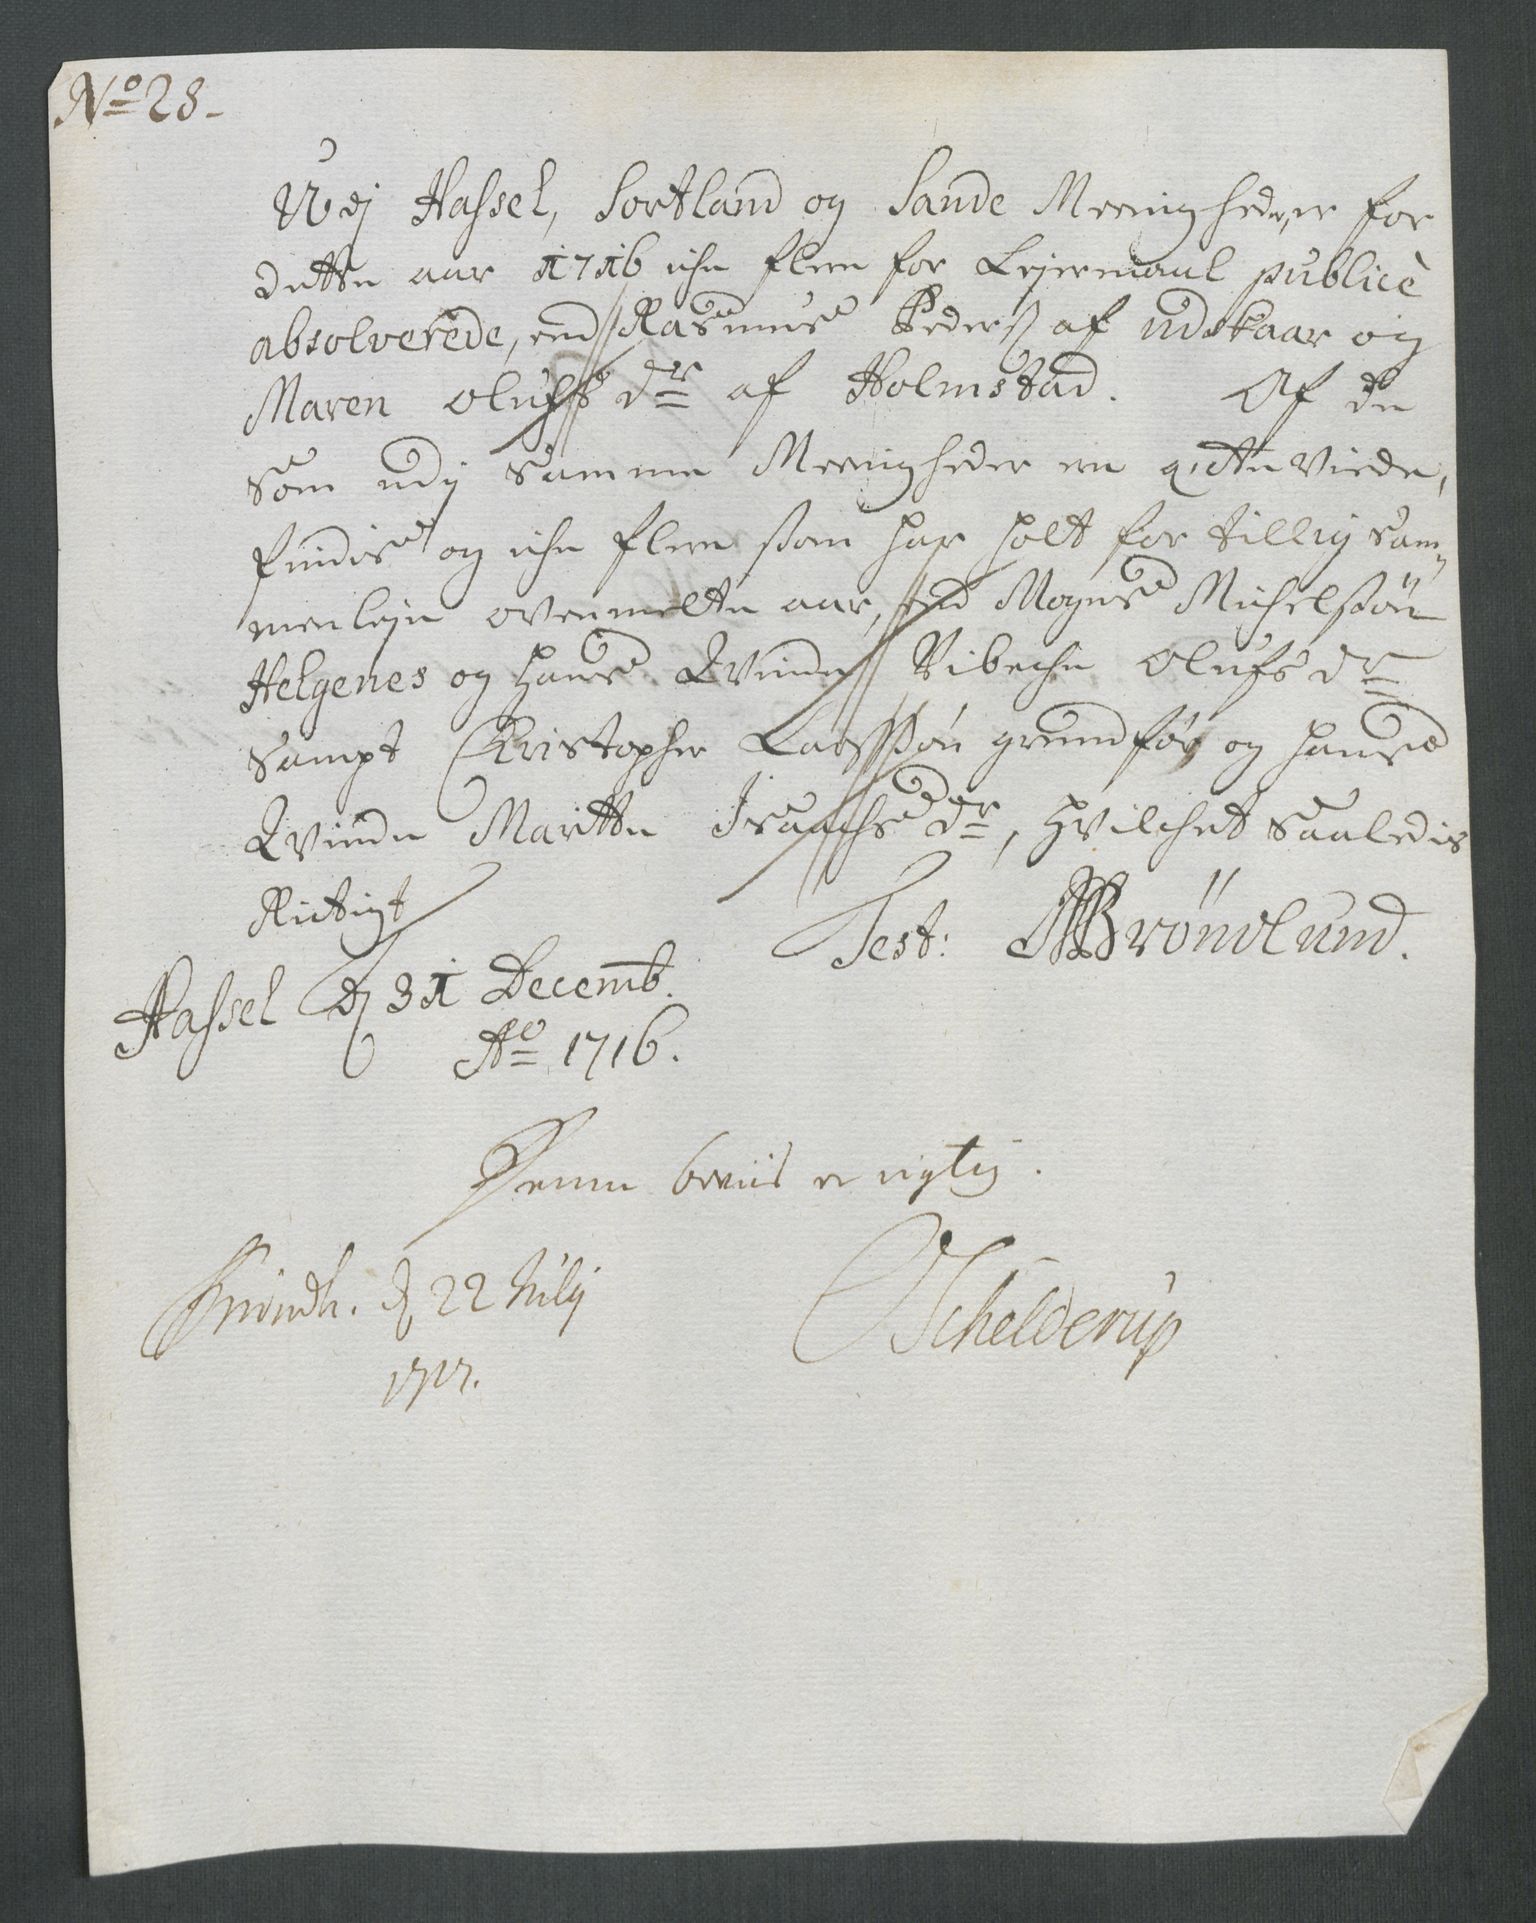 No 28-
Udj Hassel, Sortland og Sande Meenigheder, er for
dette aar 1716 iche fleere for Lejermaal publicè
absolverede, end Rasmus Peders: af udskaar og
Maren olufsdr af Holmstad. Af de
som udj samme Meenigheder ere gifte viede,
findis og iche fleere som har holt for tillig sam-
menleje ovenmelte aar, end Mogns Michelssøn
Helgenes og hans Qvinde Vibeche Olufsdr
sampt Christopher Larssøn grundfør og hans
Qvinde Maritte Isaachsdr, hvilchet saaledis
Rictigt
Test: Brøndlund.
Hassel d 31 Decemb.
Ao 1716.
Denne beviis er rigtig.
Trondh. d 22 Julij
1717.
Schelderup